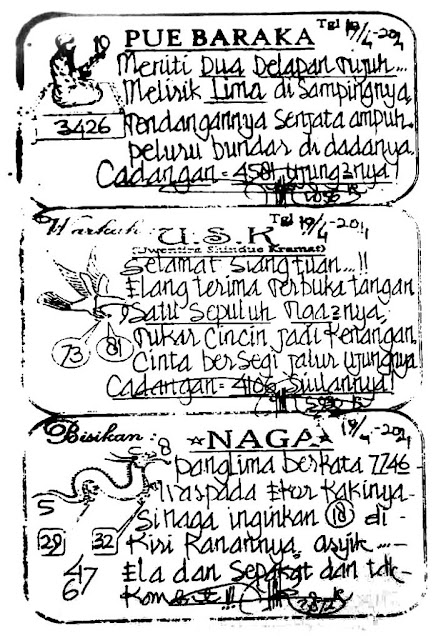 10
Tgl 19/4-2021
PUE BARAKA
Meniti Dua Delapan Tujuh...
Melirik Lima di sampingnya
3426
Pandangannya Senjata ampuh
Peluru bundar di dadanya
Cadangan = 4581, ujungnya!
Warkah:
Tgl 19/4-2021
U.S.K
(Uwentira Shindue Kramat)
Selamat siang tuan...!!
Elang terima Terbuka tangan
Satu Sepuluh Nganya
Tukar Cincin jadi Kenangan
73
81
Cinta berSegi Jalur ujungnya
Cadangan = 4106, Siulannya!
Bisikan:
8
NAGA
19/4-2021
Panglima berkata 7746
Waspada Ekor Kakinya
5
Sinaga inginkan 18 di
29
32
Kiri Kanannya, asyik...
47
67
Ela dan Sepakat dan tdk
Kombet!!!